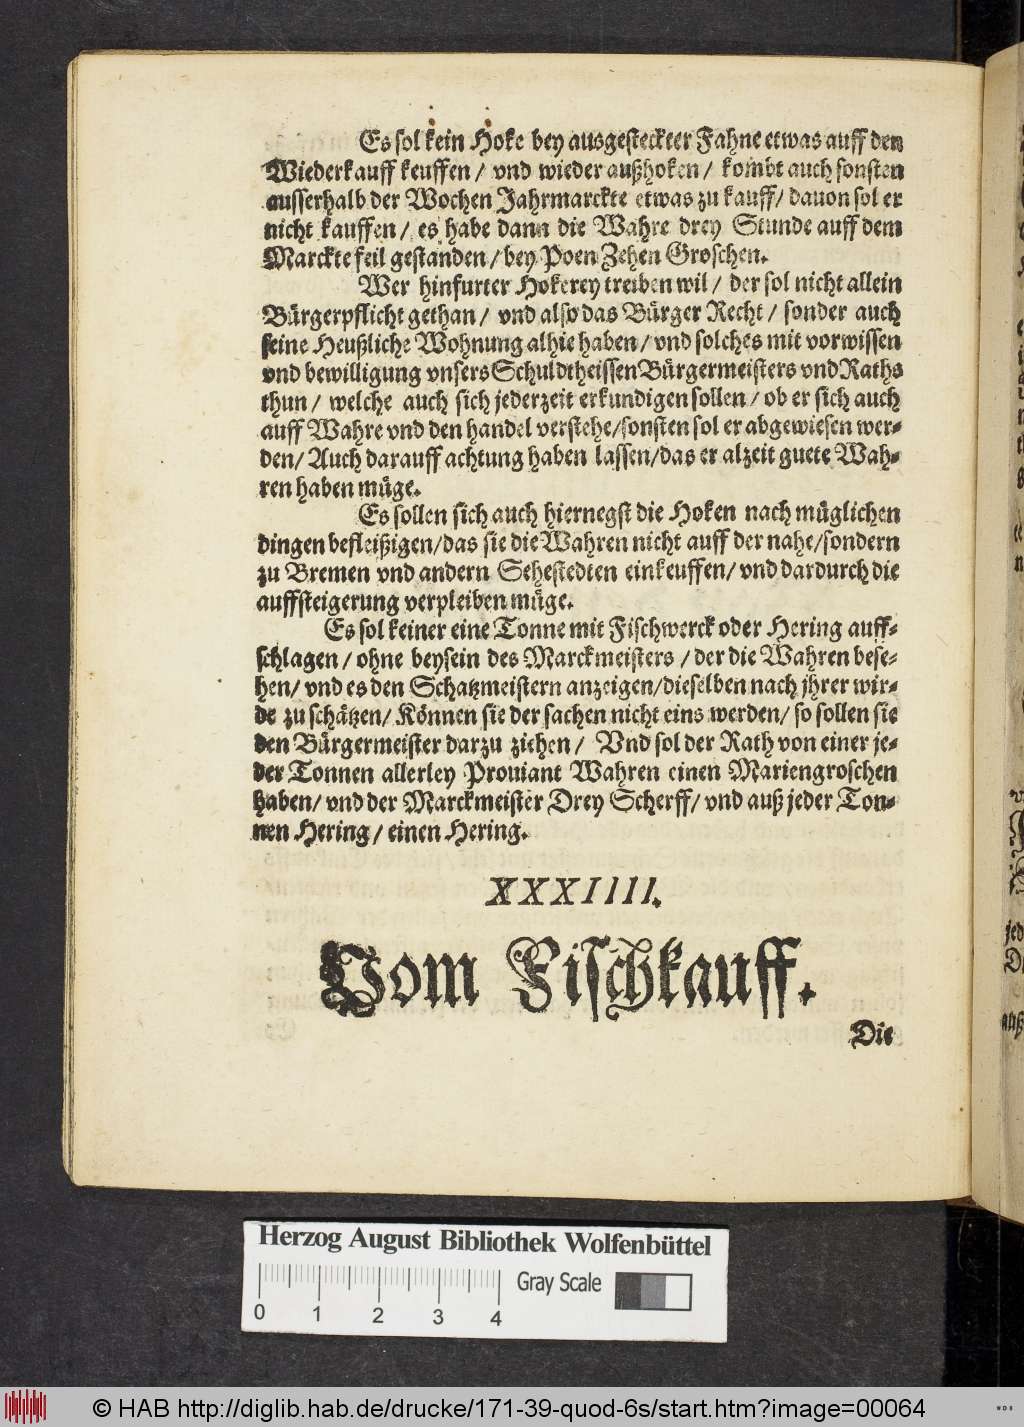 Es sol kein Hoke bey ausgesteckter Fahne etwas auff den
Wiederkauff keuffen / vnd wieder außhoken / kombt auch sonsten
ausserhalb der Wochen Jahrmarckte etwas zu kauff / dauon sol er
nicht kauffen / es habe dann die Wahre drey Stunde auff dem
Marckte feil gestanden / bey Poen Zehen Groschen.
Wer hinfurter Hokerey treiben wil / der sol nicht allein
Bürgerpflicht gethan / vnd also das Bürger Recht / sonder auch
seine Heußliche Wohnung alhie haben / vnd solches mit vorwissen
vnd bewilligung vnsers Schuldtheissen Bürgermeisters vnd Raths
thun / welche auch sich jederzeit erkundigen sollen / ob er sich auch
auff Wahre vnd den handel verstehe / sonsten sol er abgewiesen wer-
den / Auch darauff achtung haben lassen / das er alzeit guete Wah-
ren haben müge.
Es sollen sich auch hiernegst die Hoken nach müglichen
dingen befleißigen / das sie die Wahren nicht auff der nahe / sondern
zu Bremen vnd andern Sehestedten einkeuffen / vnd dardurch die
auffsteigerung verpleiben müge.
Es sol keiner eine Tonne mit Fischwerck oder Hering auff-
schlagen / ohne beysein des Marckmeisters / der die Wahren bese-
hen / vnd es den Schatzmeistern anzeigen / dieselben nach jhrer wir-
de zu schätzen / Können sie der sachen nicht eins werden / so sollen sie
den Bürgermeister darzu ziehen / Vnd sol der Rath von einer je-
der Tonnen allerley Prouiant Wahren einen Mariengroschen
haben / vnd der Marckmeister Drey Scherff / vnd auß jeder Ton-
nen Hering / einen Hering.
XXXIIII.
Vom Fischkauff.
Die
Herzog August Bibliothek Wolfenbüttel
Gray Scale
0 1 2 3 4
© HAB http://diglib.hab.de/drucke/171-39-quod-6s/start.htm?image=00064